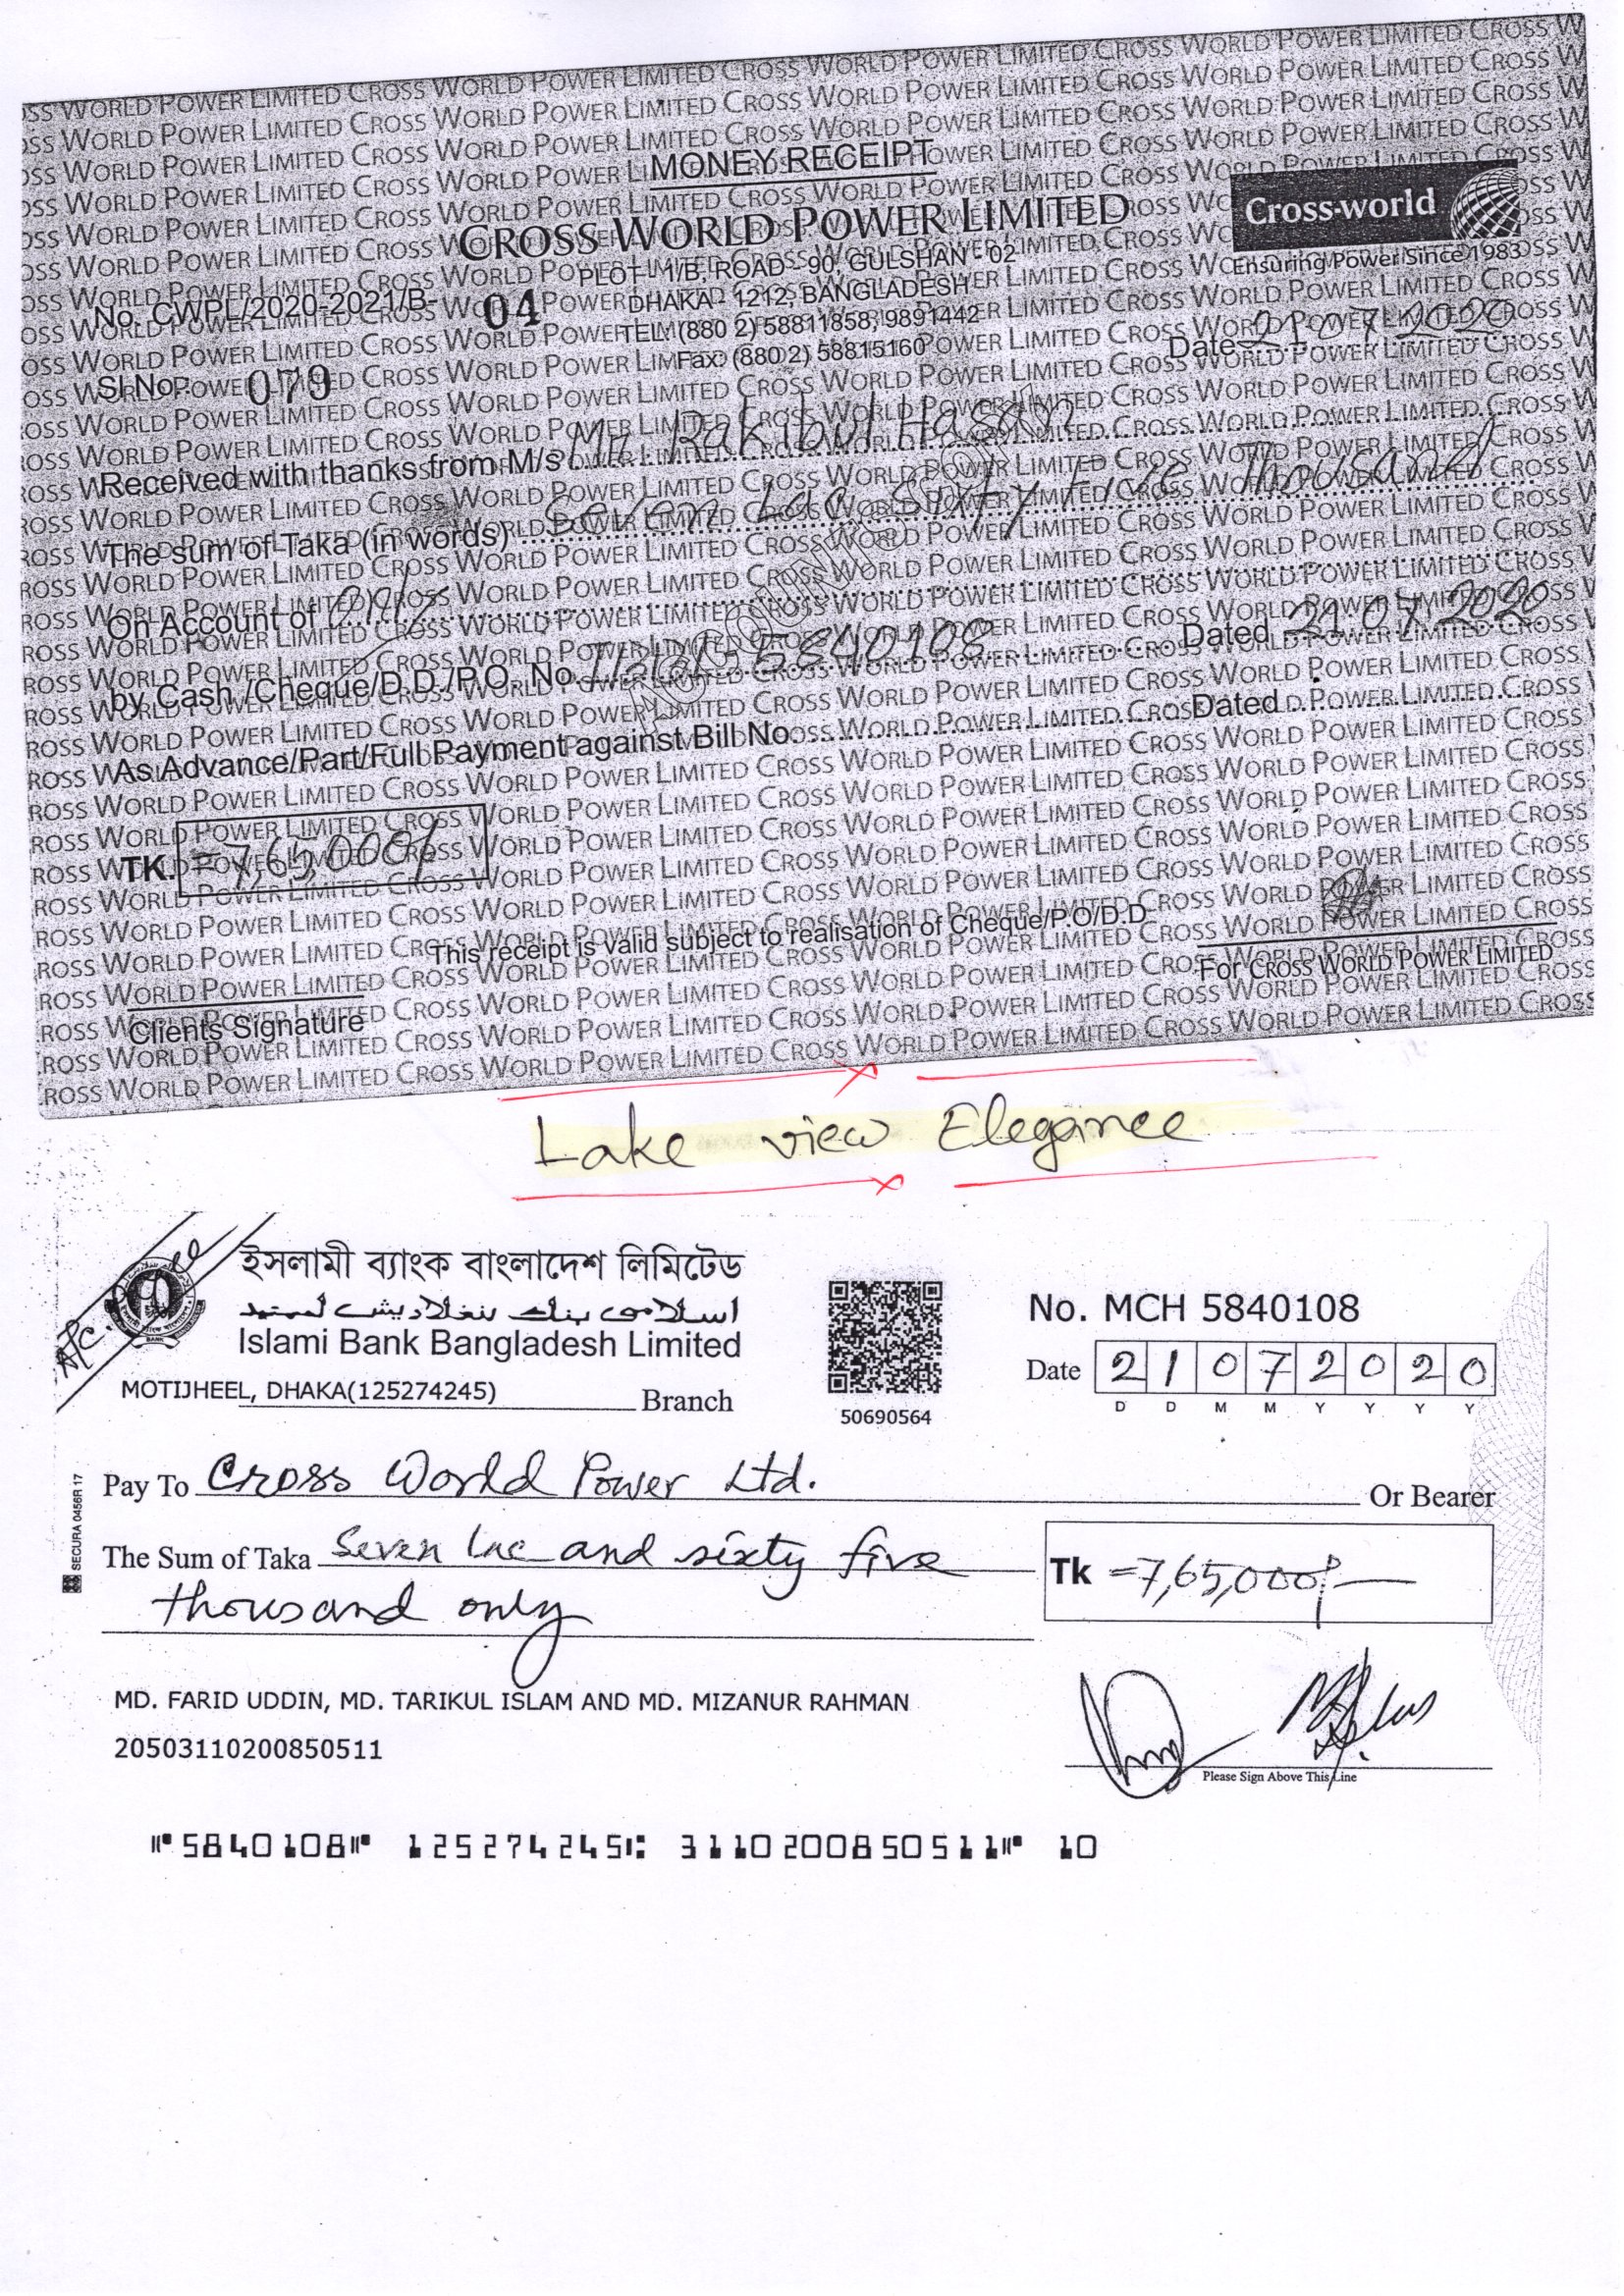 MONEY RECEIPT
CROSS WORLD POWER LIMITED
Cross-world
Ensuring Power Since 1983
PLOT - 1/B, ROAD - 90, GULSHAN - 02
DHAKA - 1212, BANGLADESH
TEL: (880 2) 58811858, 9891442
Fax: (880 2) 58815160
No. CWPL/2020-2021/B- 04
Date 21.07.2020
Sl. No. 079
Received with thanks from M/s Mr. Rakibul Hasan
The sum of Taka (in words) Seven Lac Sixty Five Thousand
On Account of
by Cash /Cheque/D.D./P.O. No. 5840108 Dated 21.07.2020
As Advance/Part/Full Payment against Bill No Dated
TK. =7,65,000/
This receipt is valid subject to realisation of Cheque/P.O/D.D
For CROSS WORLD POWER LIMITED
Clients Signature
Lake view Elegance
A/C. Payee
ইসলামী ব্যাংক বাংলাদেশ লিমিটেড
اسلامى بنك بنغلاديش لميتيد
Islami Bank Bangladesh Limited
MOTIJHEEL, DHAKA(125274245) Branch
50690564
No. MCH 5840108
Date 21072020
D D M M Y Y Y Y
Pay To Cross World Power Ltd. Or Bearer
The Sum of Taka Seven lac and sixty five
thousand only
Tk =7,65,000/-
SECURA 0456R 17
MD. FARID UDDIN, MD. TARIKUL ISLAM AND MD. MIZANUR RAHMAN
20503110200850511
Please Sign Above This Line
⑈5840108⑈ 125274245⑆ 3110200850511⑈ 10